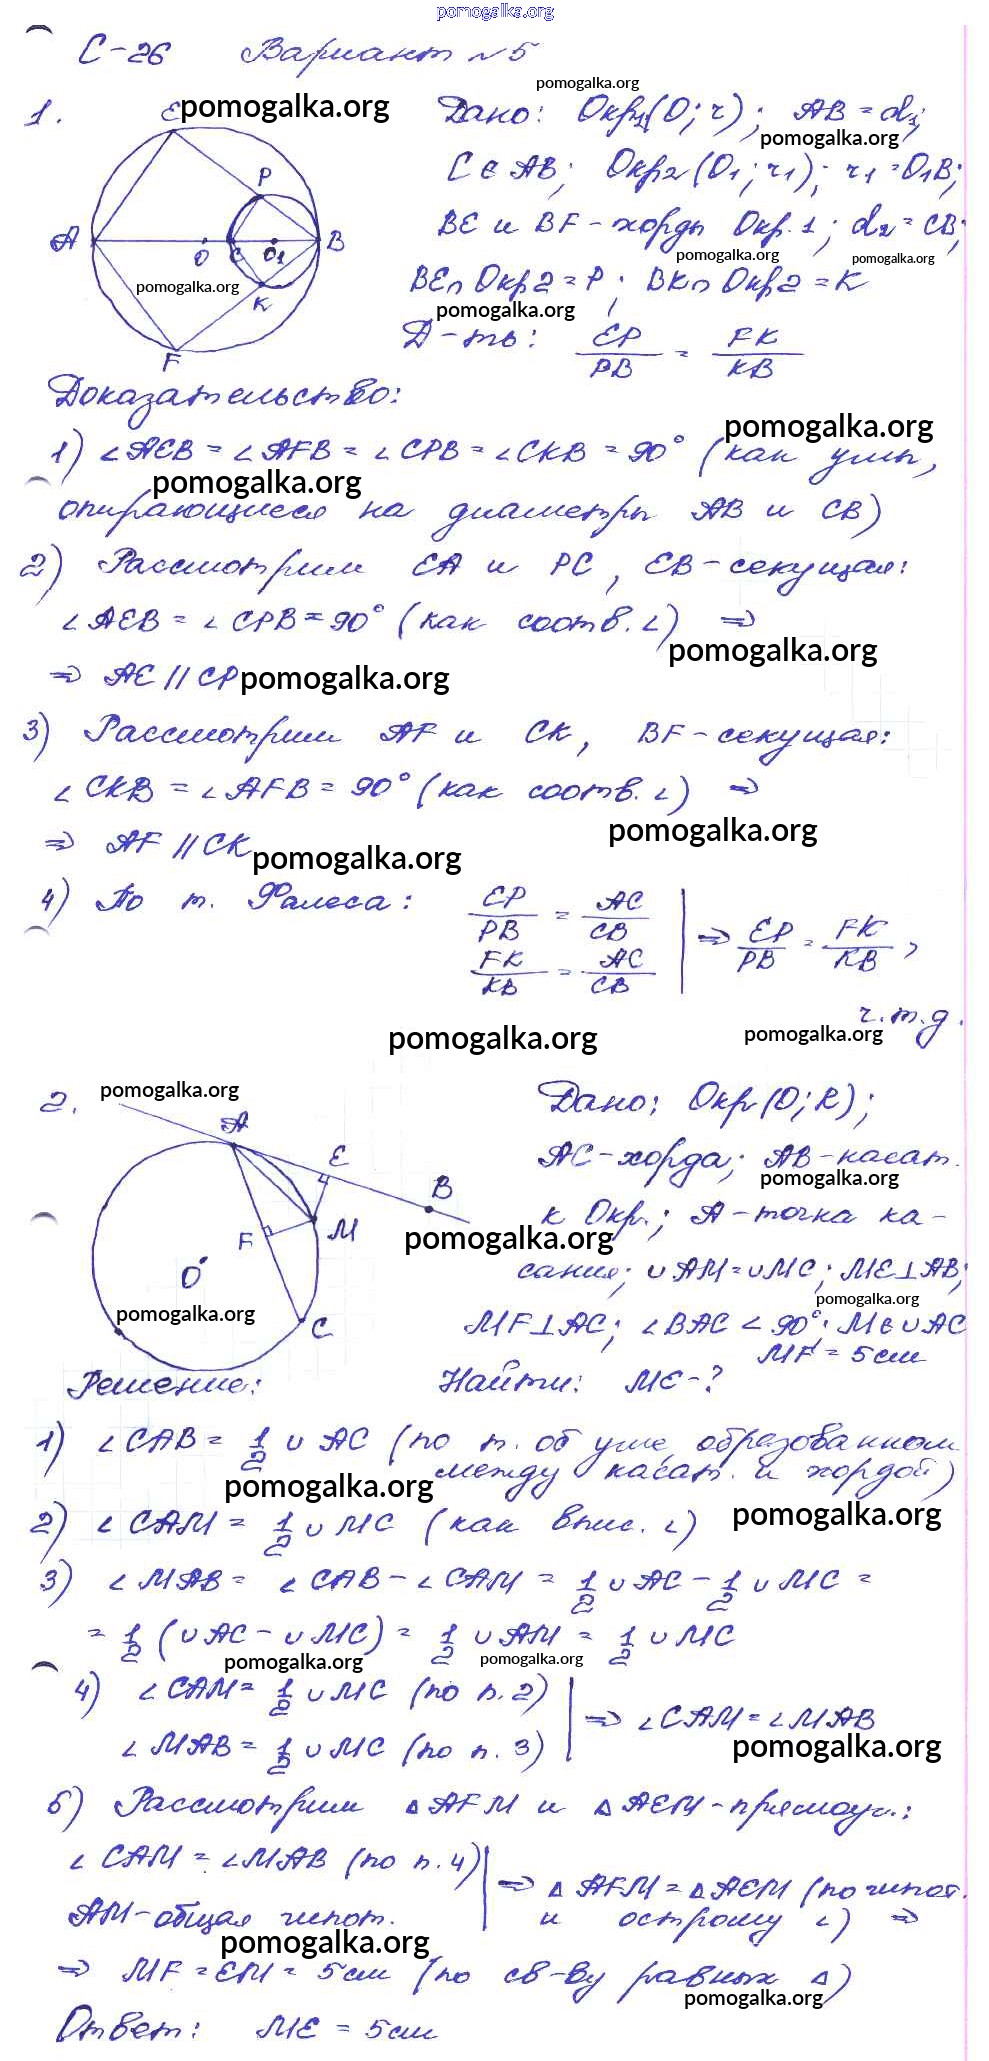 pomogalka.org
С-26 Вариант №5
pomogalka.org
1. E pomogalka.org Дано: Окр1(O; r); AB = d1;
pomogalka.org
C ∈ AB; Окр2(O1; r1); r1 = O1B;
P
BE и BF - хорды Окр.1; d2 = CB;
A O C O1 B
pomogalka.org pomogalka.org
pomogalka.org BE ∩ Окр2 = P; BK ∩ Окр2 = K
K pomogalka.org
F Д-ть: EP/PB = FK/KB
Доказательство:
pomogalka.org
1) ∠AEB = ∠AFB = ∠CPB = ∠CKB = 90° (как углы,
pomogalka.org
опирающиеся на диаметры AB и CB)
2) Рассмотрим EA и PC, EB - секущая:
∠AEB = ∠CPB = 90° (как соотв. ∠) ⇒
pomogalka.org
⇒ AE // CP pomogalka.org
3) Рассмотрим AF и CK, BF - секущая:
∠CKB = ∠AFB = 90° (как соотв. ∠) ⇒
pomogalka.org
⇒ AF // CK pomogalka.org
4) По т. Фалеса: EP/PB = AC/CB
FK/KB = AC/CB | ⇒ EP/PB = FK/KB,
ч.т.д.
pomogalka.org pomogalka.org
2. pomogalka.org Дано: Окр(O; R);
A
AC - хорда; AB - касат.
E pomogalka.org
B к Окр.; A - точка ка-
F M pomogalka.org
сания; ∪AM = ∪MC; ME ⊥ AB;
O pomogalka.org
pomogalka.org MF ⊥ AC; ∠BAC < 90°; M ∈ ∪AC
C MF = 5 см
Решение: Найти: ME - ?
1) ∠CAB = 1/2 ∪ AC (по т. об угле, образованном
между касат. и хордой)
pomogalka.org
2) ∠CAM = 1/2 ∪ MC (как впис. ∠) pomogalka.org
3) ∠MAB = ∠CAB - ∠CAM = 1/2 ∪ AC - 1/2 ∪ MC =
= 1/2 (∪ AC - ∪ MC) = 1/2 ∪ AM = 1/2 ∪ MC
pomogalka.org pomogalka.org
4) ∠CAM = 1/2 ∪ MC (по п. 2)
∠MAB = 1/2 ∪ MC (по п. 3) | ⇒ ∠CAM = ∠MAB
pomogalka.org
5) Рассмотрим △AFM и △AEM - прямоуг.:
∠CAM = ∠MAB (по п. 4) | ⇒ △AFM = △AEM (по гипот.
AM - общая гипот. и острому ∠) ⇒
pomogalka.org
⇒ MF = EM = 5 см (по св-ву равных △)
pomogalka.org
Ответ: ME = 5 см